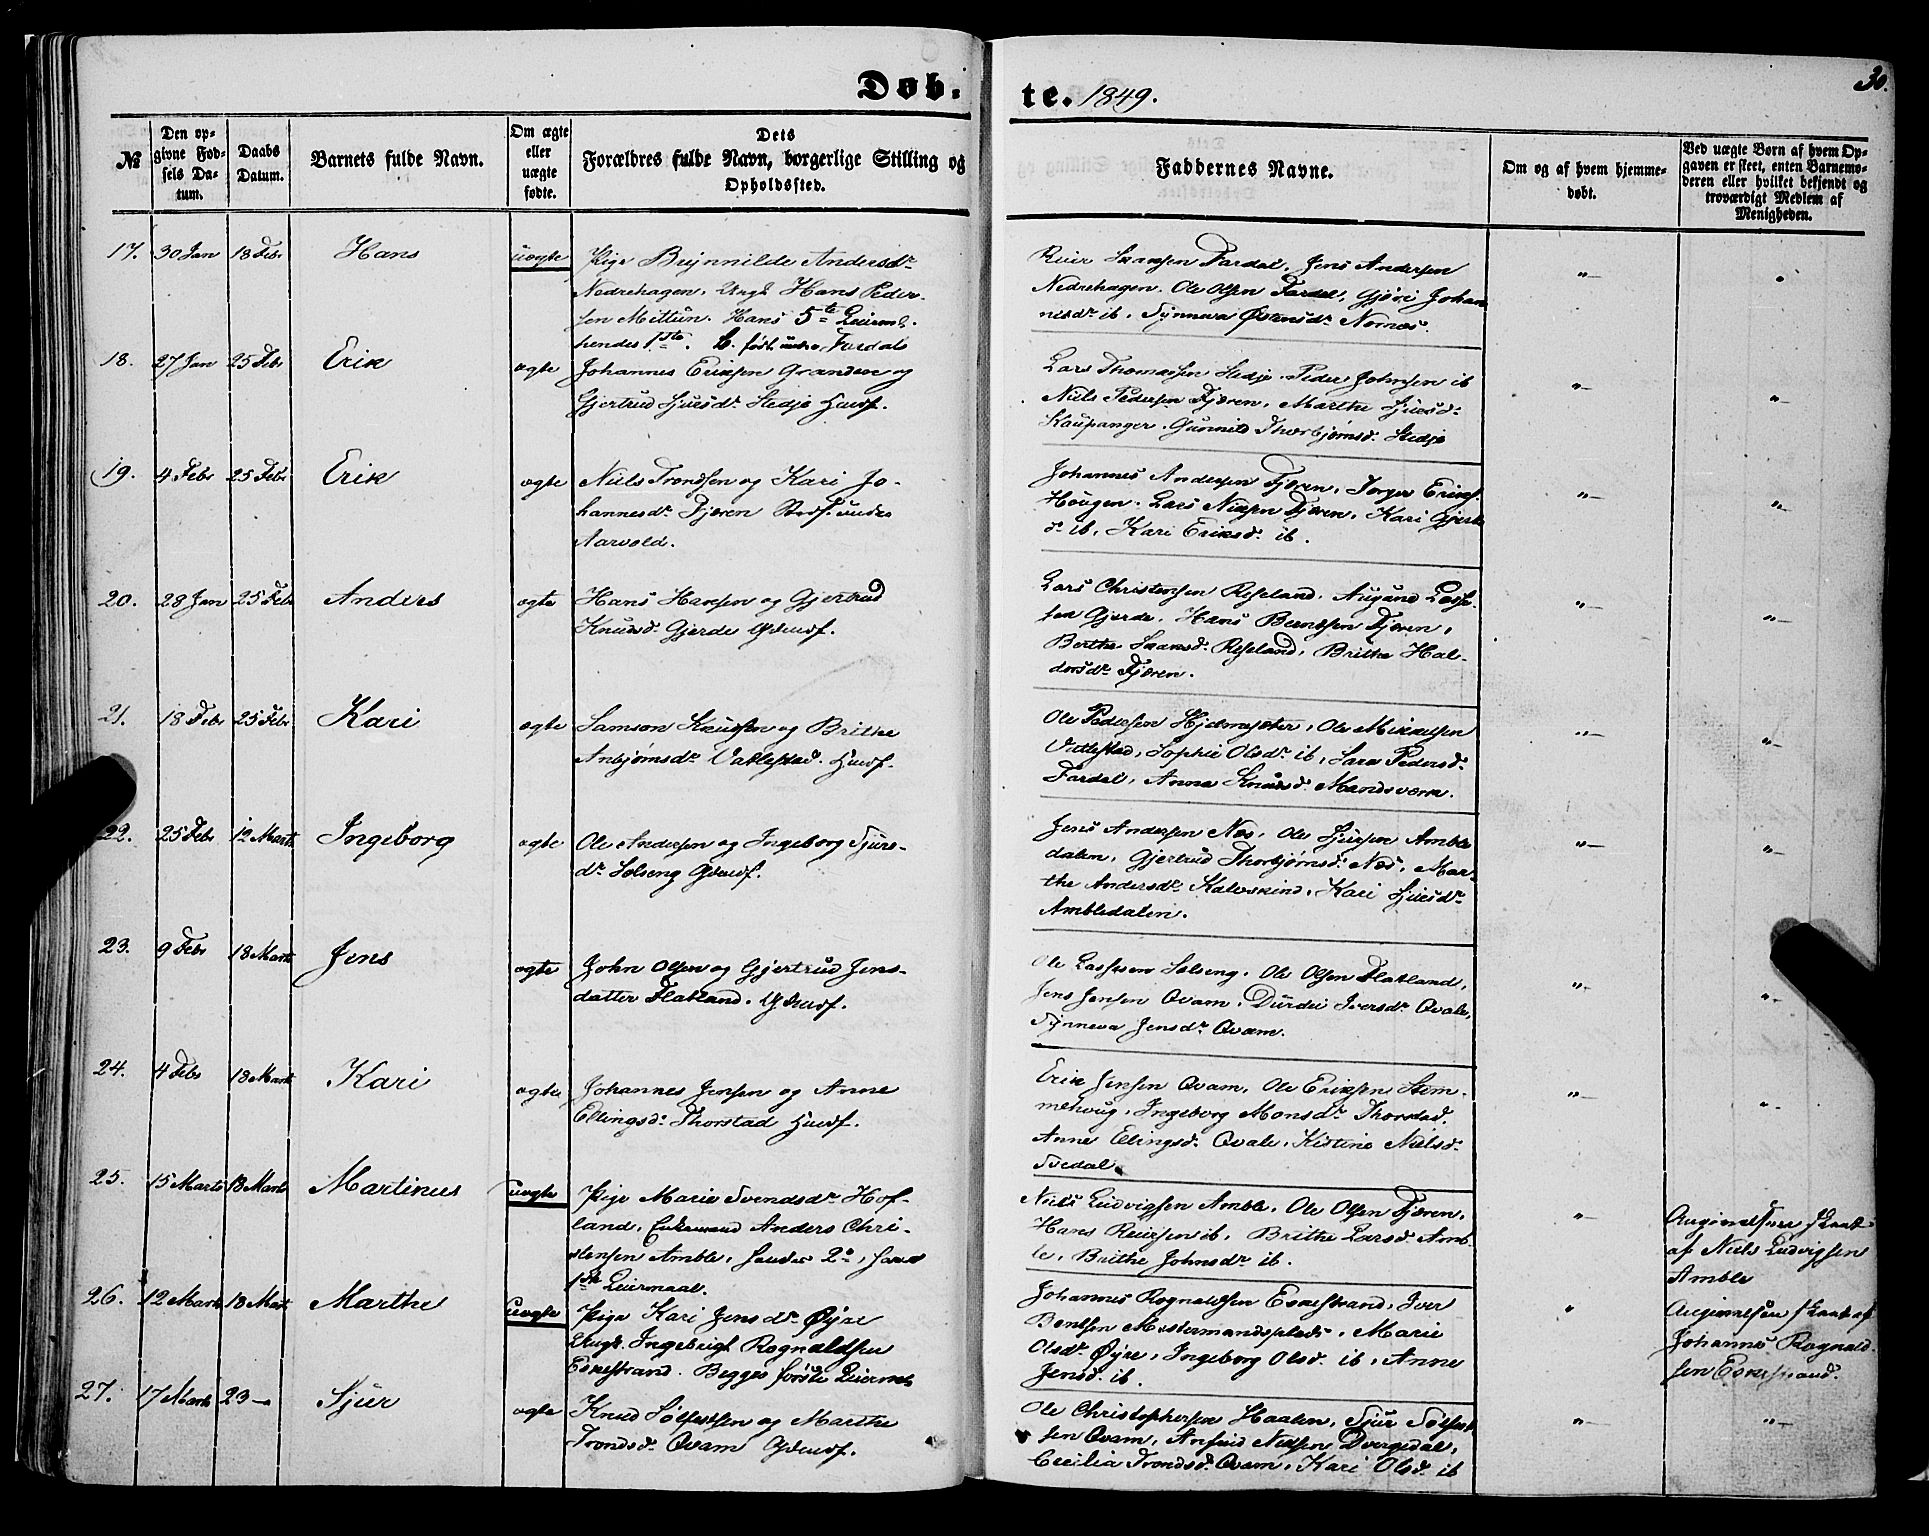 Døb-
te. 1849.
30.
№
Den op-
givne Fød-
sels Da-
tum.
Daabs
Datum.
Barnets fulde Navn.
Om ægte
eller
uægte
fødte.
Dets
Forældres fulde Navn, borgerlige Stilling og
Opholdssted.
Faddernes Navne.
Om og af hvem hjemme-
døbt.
Ved uægte Børn af hvem Op-
gaven er skeet, enten Barnemo-
deren eller hvilket bekjendt og
troværdigt Medlem af
Menigheden.
17. 30 Jan 18 Febr Hans uægte
Pige Brynnilde Andersdr
Nedrehagen. Ungk Hans Peder-
sen Mittun. Hans 5te Leierm.
hendes 1ste. født under Fardals
Reier Hansen Fardal, Jens Andersen
Nedrehagen. Ole Olsen Fardal, Gjøri Johan
nesdr ib, Synneva Østensdr Nornes.
18. 27 Jan 25 Febr Erik ægte
Johannes Eriksen Granden og
Gjertrud Sjursdr Stedje Huusf.
Lars Thomassen Stedje. Peder Johnsen ib
Niels Pedersen Fjæren, Marthe Sjursd.
Kaupanger. Gunnild Thorbjørnsd. Stedje
19. 4 Febr 25 Febr Erik ægte
Niels Trondsen og Kari Jo-
hannesdr Fjæren Strdf. under
Aarvold.
Johannes Andersen Fjæren, Torger Eriks.
Hougen. Lars Nielsen Fjæren, Kari Gjert
dr ib, Kari Eriksd. ib.
20. 28 Jan 25 Febr Anders ægte
Hans Hansen og Gjertrud
Knudsd. Gjerde Gdmdf.
Lars Christensen Røseland, Augund Lasse-
sen Gjerde. Hans Berntsen Fjæren,
Berthe Hansd. Røseland, Brithe Hal-
dorsdr Fjæren.
21. 18 Febr 25 Febr Kari ægte
Samson Knudsen og Brithe
Anbjørnsdr Vatlestad. Huusf.
Ole Pedersen Hjelmesæter, Ole Mikkelsen
Vatlestad, Sophie Olsdr ib, Sara Pedersd.
Fardal, Anna Knudsd. Mandsværk.
22. 25 Febr 12 Marts Ingeborg ægte
Ole Andersen og Ingeborg Sjurs-
dr Solseng Gdmdf.
Jens Andersen Næs, Ole Sjursen Amble
dalen, Gjertrud Thorbjørnsd. Næs, Mar-
the Andersdr Kalvskind, Kari Sjursdr
Ambledalen.
23. 9 Febr 18 Marts Jens ægte
John Olsen og Gjertrud Jens-
datter Flatland. Gdmdf.
Ole Lassesen Solseng. Ole Olsen Flatland,
Jens Jensen Qvam. Durdei Iversdr Qvale,
Synneva Jensdr Qvam.
24. 4 Febr 18 Marts Kari ægte
Johannes Jensen og Anne
Ellingsd. Thorstad Huusf.
Erik Jensen Qvam, Ole Eriksen Stem-
mehoug, Ingeborg Monsdr Thorstad.
Anne Elingsd. Qvale, Kistine Nielsd.
Tvedal.
25. 15 Marts 18 Marts Martinus uægte
Pige Marie Svendsdr Hof-
land, Enkemand Anders Chri-
stensen Amble, hendes 2det, hans
1ste Leiermaal.
Niels Ludvigsen Amble, Ole Olsen Fjæren,
Hans Reiersen ib, Brithe Larsd. Amb-
le, Brithe Johnsdr ib.
Angivelsen skeet
af Niels Ludvigsen
Amble
26. 12 Marts 18 Mart Marthe uægte
Pige Kari Jensdr Øyre
Ungk. Ingebrigt Rognaldsen
Eskestrand. Begges første Leierm.
Johannes Rognaldsen Eskestrand, Iver
Bentsen Mestermandsplads, Marie
Olsdr Øyre, Ingeborg Olsd. ib, Anne
Jensd. ib.
Angivelsen skeet af
Johannes Rognald-
sen Eskestrand.
27. 17 Marts 23 — Sjur ægte
Knud Sølfestsen og Marthe
Trondsd. Qvam Gdmdf.
Ole Christophersen Haalen, Sjur Sølfest
sen Qvam, Ansfind Nielsen Dvergedal,
Cecilia Trondsd. Qvam, Kari Olsd. ib